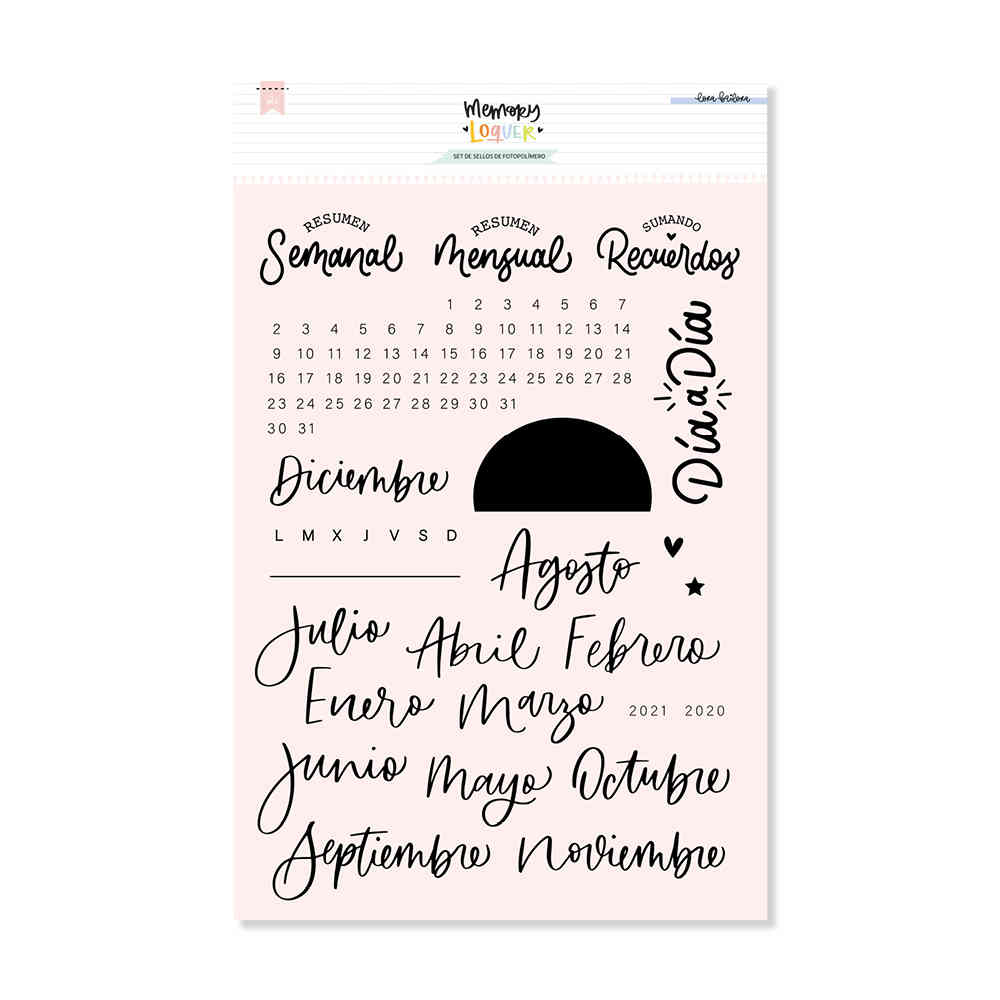 Memory
LOQUER
lora bailora
SET DE SELLOS DE FOTOPOLÍMERO
RESUMEN
Semanal
RESUMEN
Mensual
SUMANDO
Recuerdos
1 2 3 4 5 6 7
2 3 4 5 6 7 8 9 10 11 12 13 14
9 10 11 12 13 14 15 16 17 18 19 20 21
16 17 18 19 20 21 22 23 24 25 26 27 28
23 24 25 26 27 28 29 30 31
30 31
Día a Día
Diciembre
L M X J V S D
Agosto
Julio Abril Febrero
Enero Marzo 2021 2020
Junio Mayo Octubre
Septiembre Noviembre